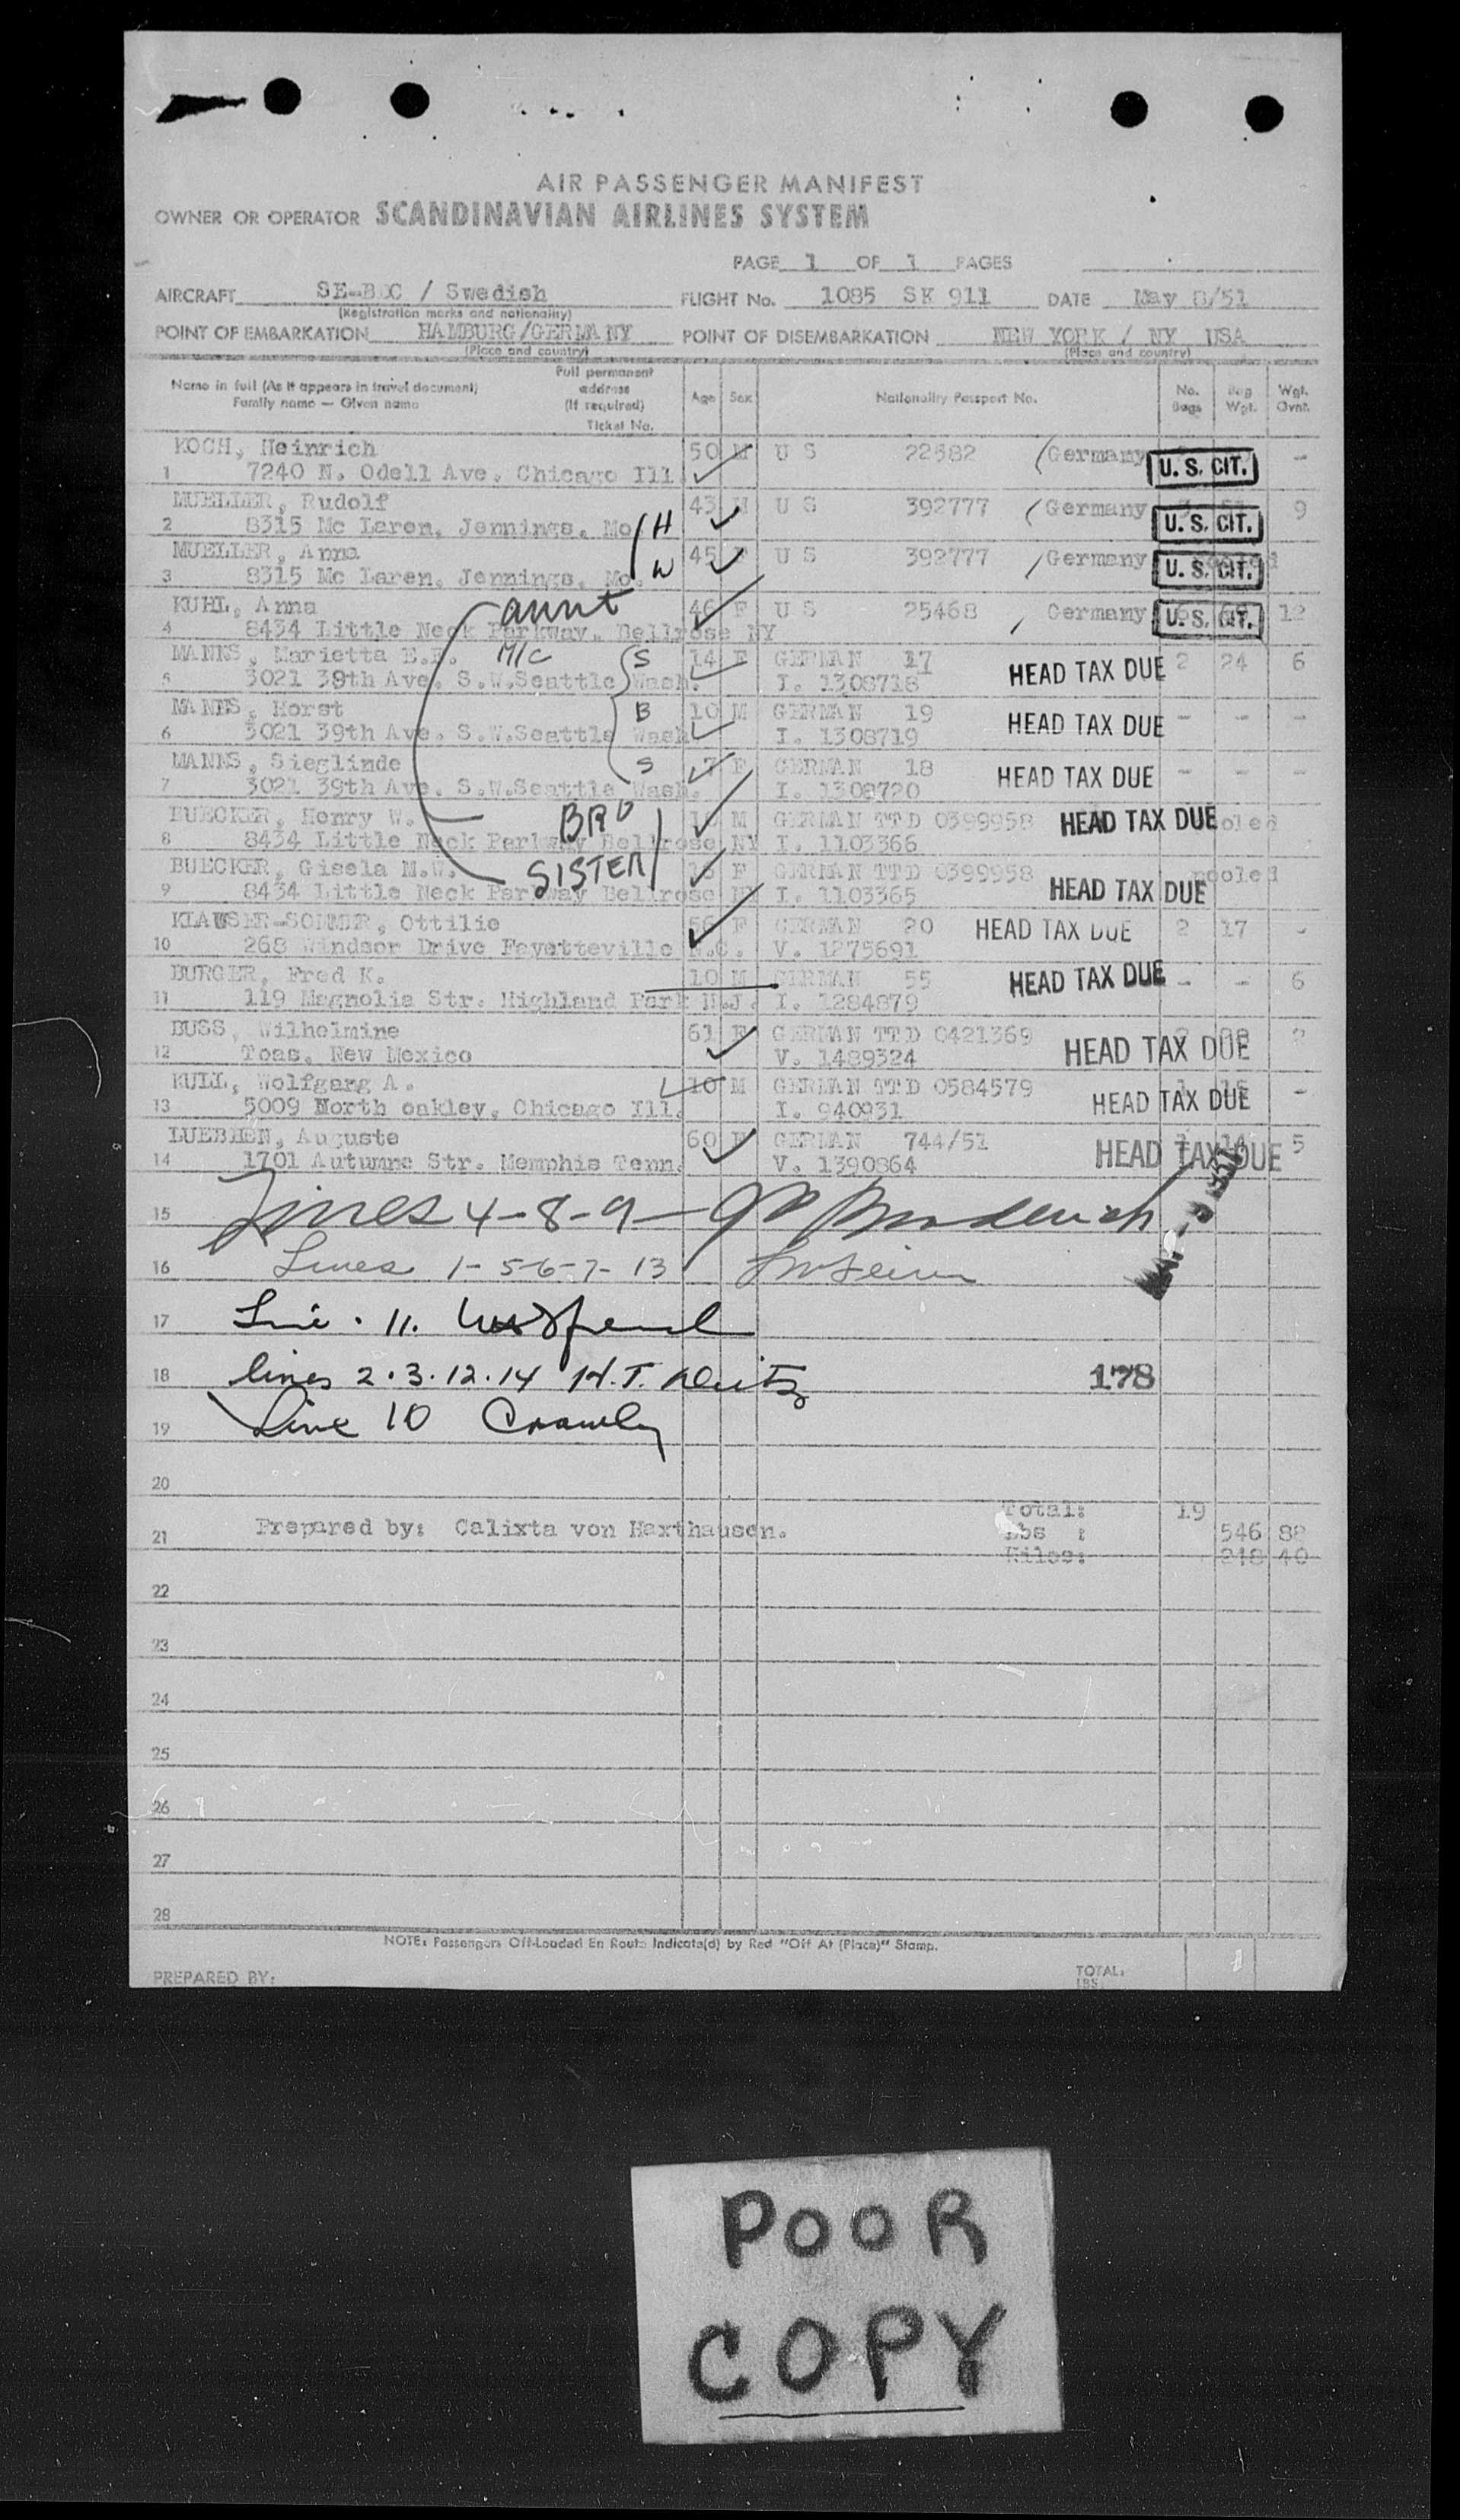 AIR PASSENGER MANIFEST
OWNER OR OPERATOR SCANDINAVIAN AIRLINES SYSTEM
PAGE 1 OF 1 PAGES
AIRCRAFT SE-BDC / Swedish FLIGHT No. 1085 SK 911 DATE May 8/51
(Registration marks and nationality)
POINT OF EMBARKATION HAMBURG/GERMANY POINT OF DISEMBARKATION NEW YORK / NY USA
(Place and country) (Place and country)
Name in full (As it appears in travel document) Family name — Given name Full permanent address (If required) Ticket No. Age Sex Nationality Passport No. No. Bags Bag Wgt. Wgt. Ovnt.
KOCH, Heinrich 50 M U S 22582 (Germany U. S. CIT. -
1 7240 N. Odell Ave. Chicago Ill.
MUELLER, Rudolf 43 M U S 392777 (Germany U. S. CIT. 9
2 8315 Mc Laren, Jennings, Mo. H
MUELLER, Anna 45 F U S 392777 /Germany U. S. CIT.
3 8315 Mc Laren, Jennings, Mo. W
KUHL, Anna aunt 46 F U S 25468 Germany U. S. CIT. 12
4 8434 Little Neck Parkway, Bellrose NY
MANNS, Marietta E.E. M/C S 14 F GERMAN 17 HEAD TAX DUE 2 24 6
5 3021 39th Ave. S.W.Seattle Wash. I. 1308718
MANNS, Horst B 10 M GERMAN 19 HEAD TAX DUE - - -
6 3021 39th Ave. S.W.Seattle Wash. I. 1308719
MANNS, Sieglinde S 7 F GERMAN 18 HEAD TAX DUE - - -
7 3021 39th Ave. S.W.Seattle Wash. I. 1308720
BUECKER, Henry W. BRO M GERMAN TTD 0399958 HEAD TAX DUE pooled
8 8434 Little Neck Parkway Bellrose NY I. 1103366
BUECKER, Gisela M.W. SISTER F GERMAN TTD 0399958 HEAD TAX DUE pooled
9 8434 Little Neck Parkway Bellrose NY I. 1103365
KLAUSER-SOMMER, Ottilie 56 F GERMAN 20 HEAD TAX DUE 2 17 -
10 268 Windsor Drive Fayetteville N.C. V. 1275691
BURGER, Fred K. 10 M GERMAN 55 HEAD TAX DUE - - 6
11 119 Magnolia Str. Highland Park N.J. I. 1284879
BUSS, Wilhelmine 61 F GERMAN TTD 0421369 HEAD TAX DUE
12 Toas, New Mexico V. 1489324
KULL, Wolfgang A. 10 M GERMAN TTD 0584579 HEAD TAX DUE -
13 5009 North oakley, Chicago Ill. I. 940931
LUEBHEN, Auguste 60 F GERMAN 744/51 HEAD TAX DUE 5
14 1701 Autumne Str. Memphis Tenn. V. 1390864
15 Lines 4-8-9-
16 Lines 1-5-6-7-13
17 Line . 11.
18 lines 2.3.12.14 H.T. 178
19 Line 10
20
Total: 19
21 Prepared by: Calixta von Haxthausen. Lbs : 546 88
Kilos: 248 40
22
23
24
25
26
27
28
NOTE: Passengers Off-Loaded En Route Indicate(d) by Red "Off At (Place)" Stamp.
PREPARED BY: TOTAL:
LBS.
POOR
COPY